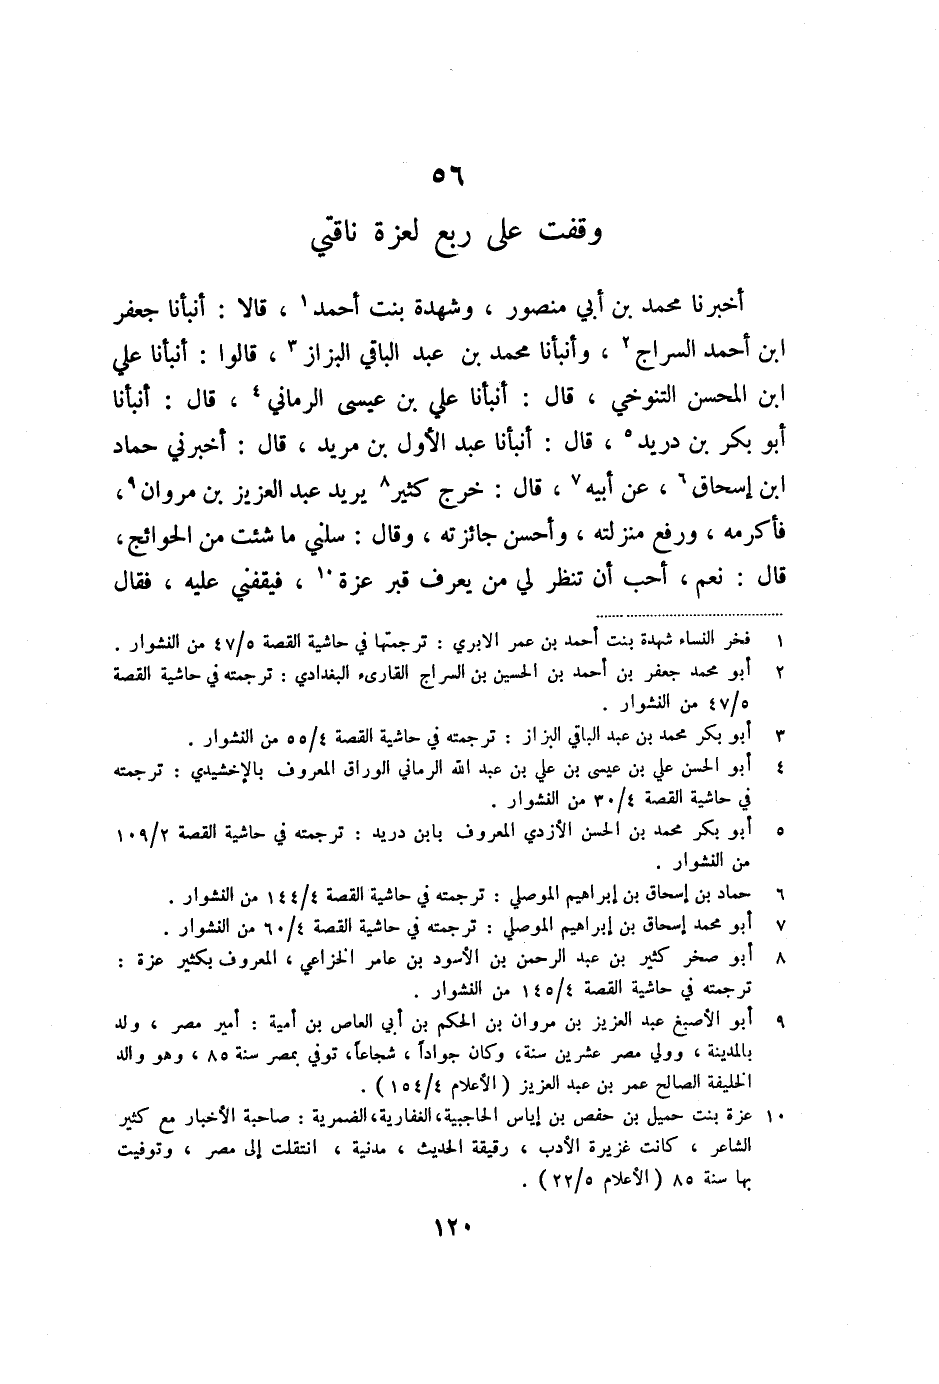 ٥٦
وقفت على ربع لعزة ناقتي
أخبرنا محمد بن أبي منصور ، وشهدة بنت أحمد١ ، قالا : أنبأنا جعفر
ابن أحمد السراج٢ ، وأنبأنا محمد بن عبد الباقي البزاز٣ ، قالوا : أنبأنا علي
ابن المحسن التنوخي ، قال : أنبأنا علي بن عيسى الرماني٤ ، قال : أنبأنا
أبو بكر بن دريد٥ ، قال : أنبأنا عبد الأول بن مريد ، قال : أخبرني حماد
ابن إسحاق٦ ، عن أبيه٧ ، قال : خرج كثير٨ يريد عبد العزيز بن مروان٩،
فأكرمه ، ورفع منزلته ، وأحسن جائزته ، وقال : سلني ما شئت من الحوائج،
قال : نعم ، أحب أن تنظر لي من يعرف قبر عزة١٠ ، فيقفني عليه ، فقال
١ فخر النساء شهدة بنت أحمد بن عمر الابري : ترجمتها في حاشية القصة ٤٧/٥ من النشوار .
٢ أبو محمد جعفر بن أحمد بن الحسين بن السراج القارىء البغدادي : ترجمته في حاشية القصة
٤٧/٥ من النشوار .
٣ أبو بكر محمد بن عبد الباقي البزاز : ترجمته في حاشية القصة ٥٥/٤ من النشوار .
٤ أبو الحسن علي بن عيسى بن علي بن عبد الله الرماني الوراق المعروف بالإخشيدي : ترجمته
في حاشية القصة ٣٠/٤ من النشوار .
٥ أبو بكر محمد بن الحسن الأزدي المعروف بابن دريد : ترجمته في حاشية القصة ١٠٩/٢
من النشوار .
٦ حماد بن إسحاق بن إبراهيم الموصلي : ترجمته في حاشية القصة ١٤٤/٤ من النشوار .
٧ أبو محمد إسحاق بن إبراهيم الموصلي : ترجمته في حاشية القصة ٦٠/٤ من النشوار .
٨ أبو صخر كثير بن عبد الرحمن بن الأسود بن عامر الخزاعي ، المعروف بكثير عزة :
ترجمته في حاشية القصة ١٤٥/٤ من النشوار .
٩ أبو الأصبغ عبد العزيز بن مروان بن الحكم بن أبي العاص بن أمية : أمير مصر ، ولد
بالمدينة ، وولي مصر عشرين سنة، وكان جواداً ، شجاعاً، توفي بمصر سنة ٨٥ ، وهو والد
الخليفة الصالح عمر بن عبد العزيز ( الأعلام ١٥٤/٤ ) .
١٠ عزة بنت حميل بن حفص بن إياس الحاجبية، الغفارية، الضمرية : صاحبة الأخبار مع كثير
الشاعر ، كانت غزيرة الأدب ، رقيقة الحديث ، مدنية ، انتقلت إلى مصر ، وتوفيت
بها سنة ٨٥ ( الأعلام ٢٢/٥ ) .
١٢٠